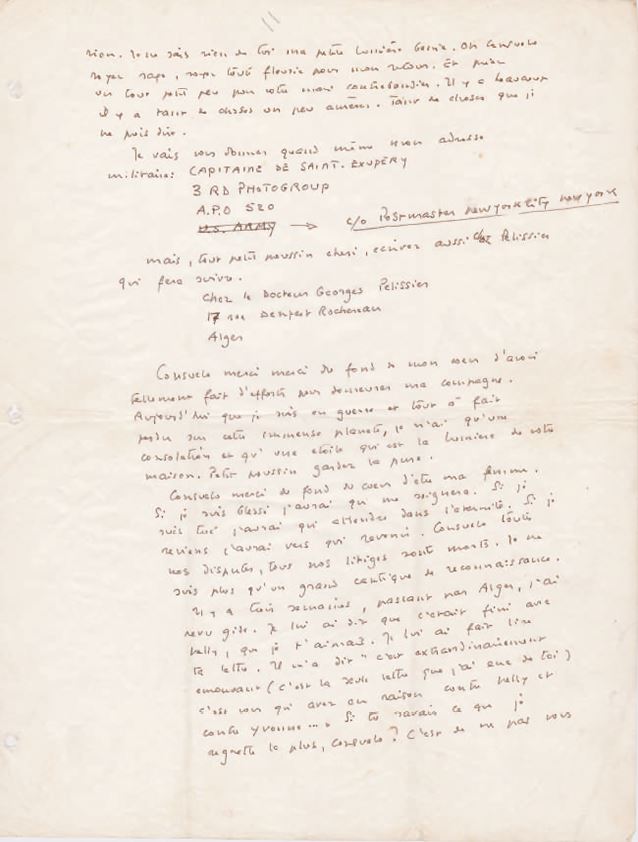 11
rien. Je ne sais rien de toi ma petite lumière bénie. Oh Consuelo
soyez sage, soyez toute fleurie pour mon retour. Et priez
un tout petit peu pour votre mari contrebandier. Il y a beaucoup
il y a tant de choses un peu amères. Tant de choses que je
ne puis dire.
Je vais vous donner quand même mon adresse
militaire: CAPITAINE DE SAINT-EXUPÉRY
3 RD PHOTOGROUP
A.P.O 520
U.S. ARMY → c/o Postmaster new york city new york
mais, tout petit poussin cheri, ecrivez aussi chez Pelissier
qui fera suivre.
Chez le Docteur Georges Pelissier
17 rue Denfert Rochereau
Alger
Consuelo merci merci du fond de mon coeur d'avoir
tellement fait d'efforts pour demeurer ma compagne.
Aujourd'hui que je suis en guerre et tout à fait
perdu sur cette immense planete, je n'ai qu'une
consolation et qu'une etoile qui est la lumiere de votre
maison. Petit poussin gardez la pure.
Consuelo merci du fond du coeur d'etre ma femme.
Si je suis blessé j'aurai qui me soignera. Si je
suis tué j'aurai qui attendre dans l'eternité. Si je
reviens j'aurai vers qui revenir. Consuelo toutes
nos disputes, tous nos litiges sont morts. Je ne
suis plus qu'un grand cantique de reconnaissance.
Il y a trois semaines, passant par Alger, j'ai
revu gide. Je lui ai dit que c'etait fini avec
nelly, que je t'aimais. Je lui ai fait lire
ta lettre. Il m'a dit "c'est extraordinairement
emouvant (c'est la seule lettre que j'ai eue de toi)
c'est vous qui avez eu raison contre nelly et
contre yvonne..." Si tu savais ce que je
regrette le plus, consuelo? C'est de ne pas vous